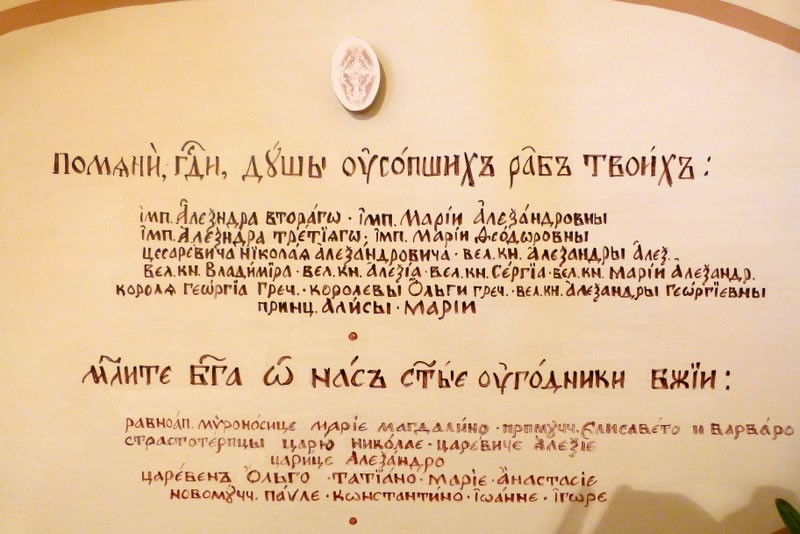 помѧнѝ, гдⷭ҇и, дꙋ́шы оу҆со́пшихъ ра̑бъ твои́хъ:
і҆мп. а҆леѯндра втора́гѡ · і҆мп. марі́и а҆леѯа́ндровны
і҆мп. а҆леѯндра тре́тїѧгѡ · і҆мп. марі́и ѳео́дѡровны
цесаре́вича нїкола́ѧ а҆леѯа́ндровича · вел. кн. а҆леѯандры а҆леѯ.
вел. кн. влади́мїра · вел. кн. а҆леѯі́а · вел. кн. се́ргїа · вел. кн. марі́и а҆леѯандр.
королѧ̀ геѡ́ргїа греч. · короле́вы ѻ҆́льги греч. · вел. кн. а҆леѯандры геѡ́ргїевны
принц. а҆ли́сы · марі́и
мл҃ите бг҃а ѡ҆ на́съ ст҃ы́е оу҆го́дники бж҃їи:
равноап. мѵроно́сице марі́е магдали́но · прпмч҃ч. є҆лисаве́то и варва́ро
страстоте́рпцы царю̀ никола́е · царе́виче а҆леѯі́е
цари́це а҆леѯа́ндро
царе́венъ ѻ҆́льго · татїа́но · марі́е · а҆настасі́е
новомч҃ч. па́ѵле · кѡнстанти́но · і҆ѡа́нне · і҆́горе